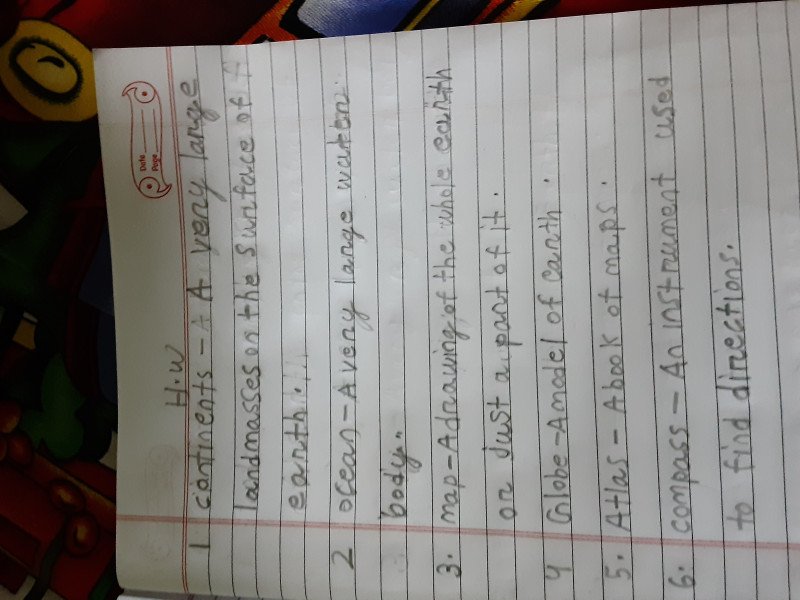 Date
Page
H.W
1 continents - A very large
landmasses on the surface of
earth.
2 ocean - A very large water
body.
3. map - A drawing of the whole earth
or just a part of it.
4 Globe - A model of earth.
5. Atlas - A book of maps.
6. compass - An instrument used
to find directions.